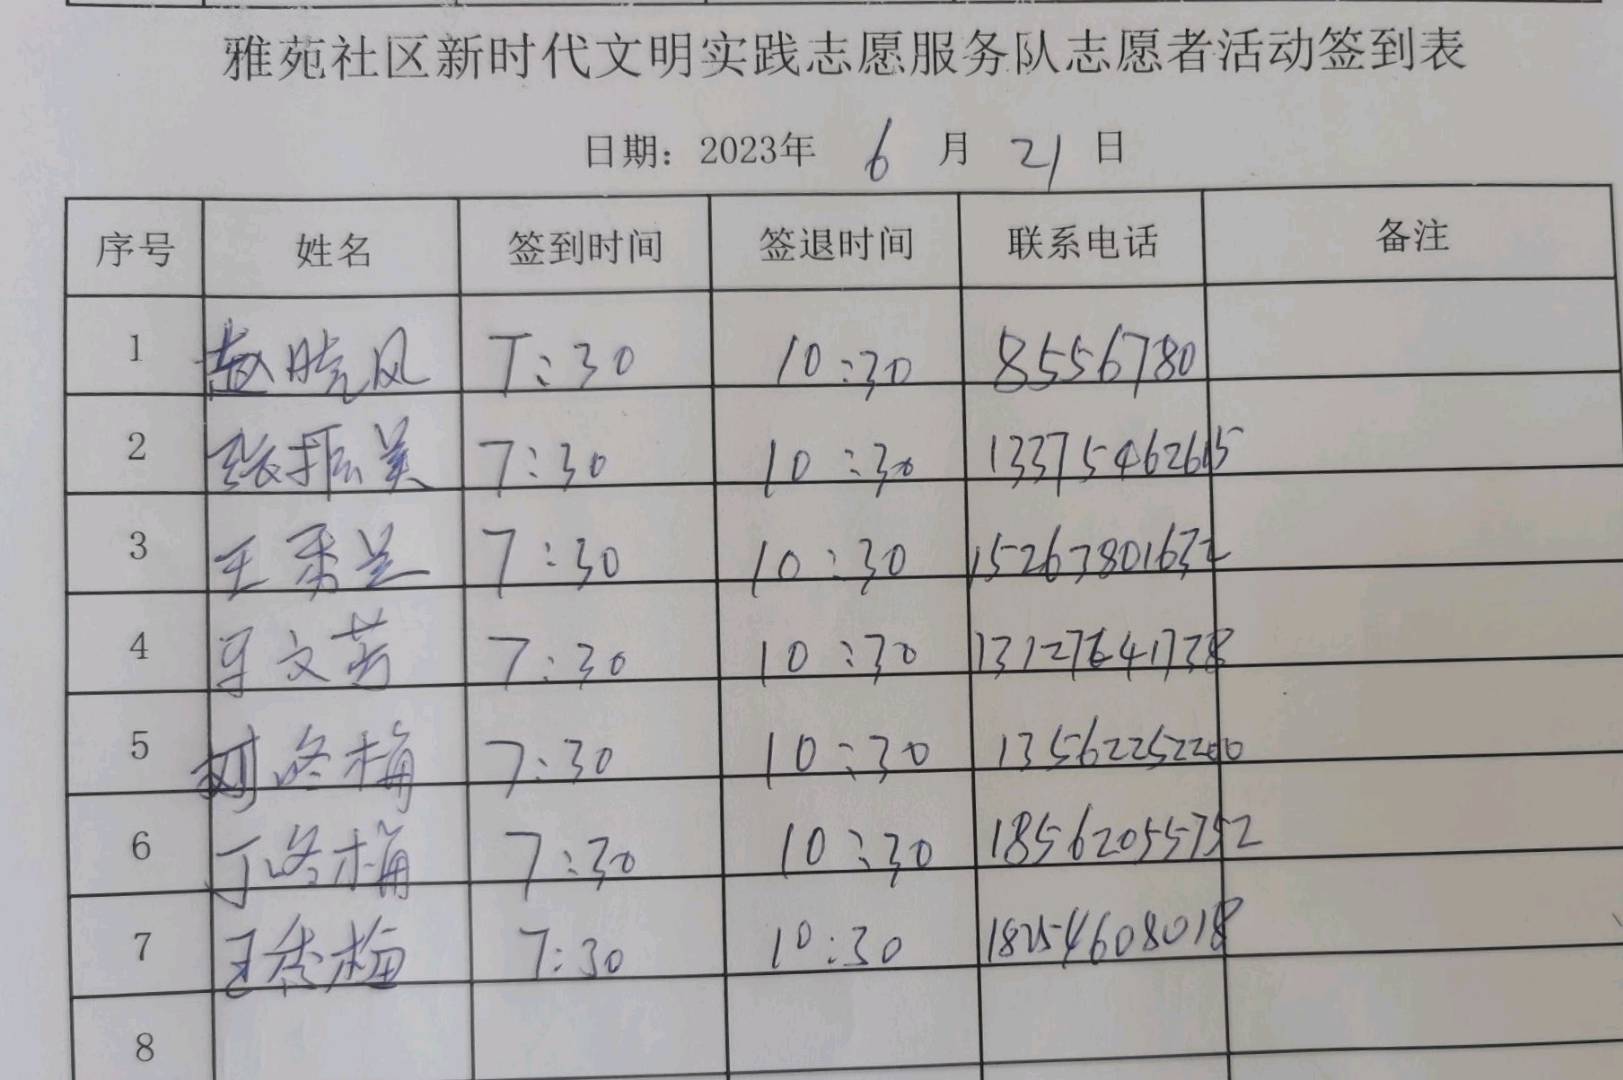 雅苑社区新时代文明实践志愿服务队志愿者活动签到表
日期：2023年 6 月 21 日
序号 姓名 签到时间 签退时间 联系电话 备注
1 赵晓风 7:30 10:30 8556780
2 张振美 7:30 10:30 13375462615
3 王秉兰 7:30 10:30 15263801632
4 文芳 7:30 10:30
5 刘咚梅 7:30 10:30 13562252200
6 丁咚梅 7:30 10:30 18562055752
7 王秀梅 7:30 10:30 18254608018
8